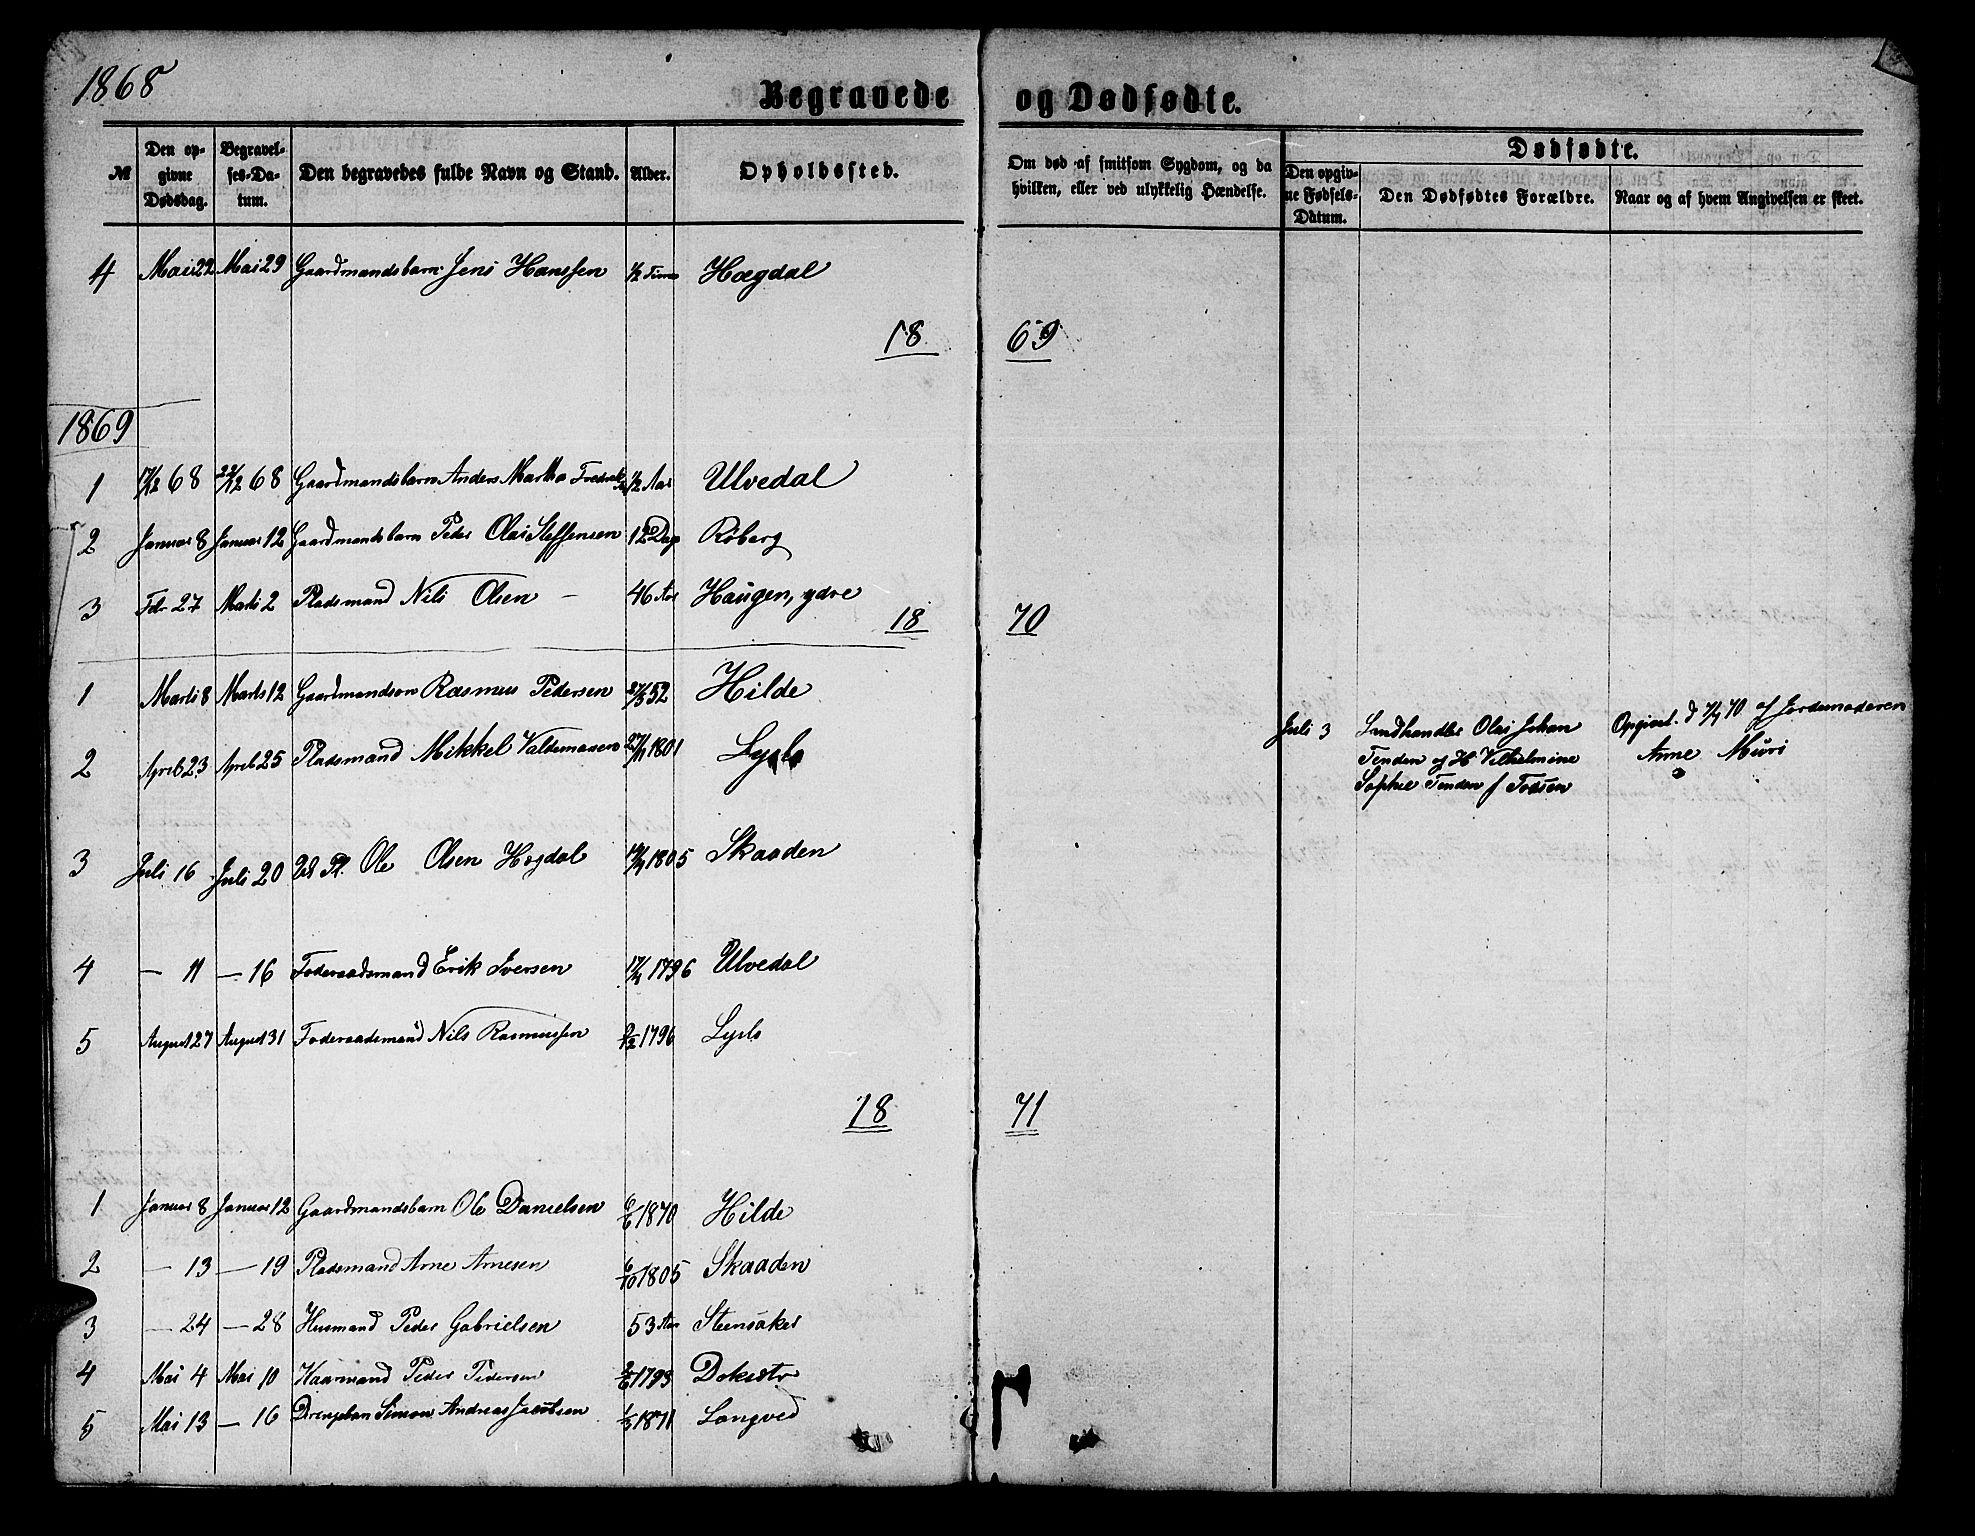 1868
Begravede og Dødfødte.
№ Den opgivne Dødsdag. Begravelses-Datum. Den begravedes fulde Navn og Stand. Alder. Opholdssted. Om død af smitsom Sygdom, og da hvilken, eller ved ulykkelig Hændelse. Dødfødte. Den opgivne Fødsels-Datum. Den Dødfødtes Forældre. Naar og af hvem Angivelsen er skeet.
4 Mai 22 Mai 29 Gaardmandsbarn Jens Hanssen 1/2 Time Hægdal
18 69
1869
1 17/12 68 22/12 68 Gaardmandsbarn Anders Martho 1/2 Aar Ulvedal
2 Januar 8 Januar 12 Gaardmandsbarn Peder Olai Steffensen Dage Røberg
3 Febr 27 Marts 2 Pladsmand Nils Olsen – 46 Aar Haugen, ydre
18 70
1 Marts 8 Marts 12 Gaardmandsøn Rasmus Pedersen 27/3 52 Hilde
2 April 23 April 25 Pladsmand Mikkel Valdemarsen 27/11 1801 Lyslo
Juli 3 Landhandler Olai Johan Opgivet d 7/7 70 af Jordemoderen
Tenden og H Vilhelmine Anne Muri
Sophie Tenden f Todsen
3 Juli 16 Juli 20 Pl. Ole Olsen Hogdal 19/4 1805 Skaaden
4 — 11 — 16 Foderaadsmand Erik Iversen 17/4 1796 Ulvedal
5 August 27 August 31 Foderaadsmand Nils Rasmussen 2/2 1796 Lyslo
18 71
1 Januar 8 Januar 12 Gaardmandsbarn Ole Danielsen 6/6 1870 Hilde
2 — 13 — 19 Pladsmand Arne Arnesen 6/10 1805 Skaaden
3 — 24 — 28 Husmand Peder Gabrielsen 53 Aar Steensaker
4 Mai 4 Mai 10 Kaarmand Peder Pedersen 2/6 1793
5 Mai 13 — 16 Drengebarn Simon Andreas Jacobsen 1/5 1871 Langved